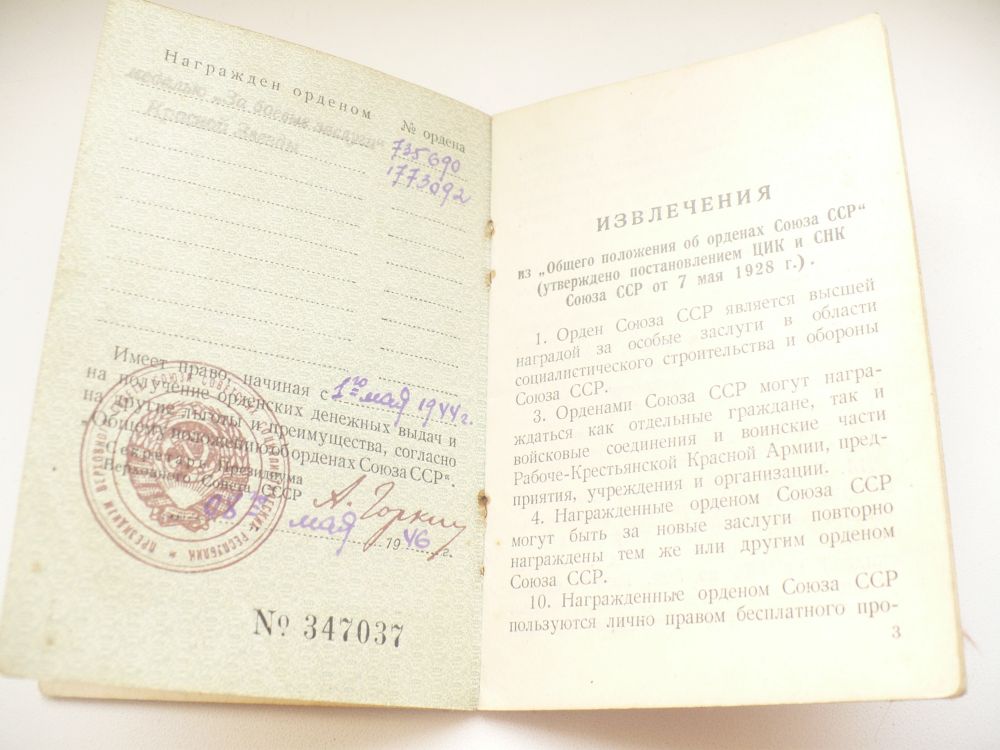 Награжден орденом
№ ордена
медалью „За боевые заслуги“ 735690
Красной Звезды 1773092
Имеет право, начиная с 1го мая 1944 г.
на получение орденских денежных выдач и
на другие льготы и преимущества, согласно
„Общему положению об орденах Союза ССР“.
Секретарь Президиума
Верховного Совета СССР
А. Горкин
08 мая 1946 г.
№ 347037
ИЗВЛЕЧЕНИЯ
из „Общего положения об орденах Союза ССР“
(утверждено постановлением ЦИК и СНК
Союза ССР от 7 мая 1928 г.).
1. Орден Союза ССР является высшей
наградой за особые заслуги в области
социалистического строительства и обороны
Союза ССР.
3. Орденами Союза ССР могут награ-
ждаться как отдельные граждане, так и
войсковые соединения и воинские части
Рабоче-Крестьянской Красной Армии, пред-
приятия, учреждения и организации.
4. Награжденные орденом Союза ССР
могут быть за новые заслуги повторно
награждены тем же или другим орденом
Союза ССР.
10. Награжденные орденом Союза ССР
пользуются лично правом бесплатного про-
3